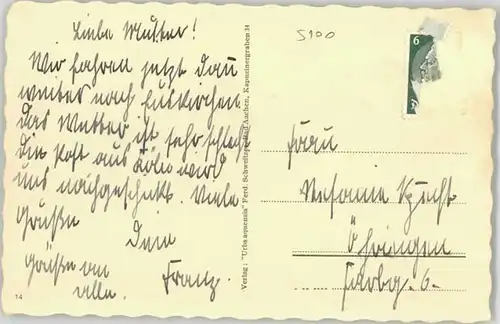 Liebe Mutter!
Wir fahren jetzt dann
weiter nach Euskirchen
das Wetter ist sehr schlecht
Die Post aus Köln wird
uns nachgeschickt. Viele
Grüße
Dein
Franz.
Grüße an
alle.
14
Verlag: "Urbs aquensis" Ferd. Schweitzer, Bad Aachen, Kapuzinergraben 34
5100
6
Frau
Stefanie
Öhringen